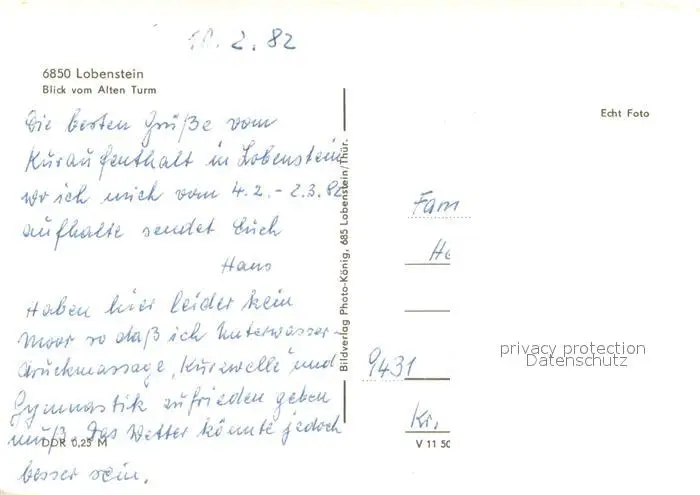 10.2.82
6850 Lobenstein
Blick vom Alten Turm
Die besten Grüße vom
Kuraufenthalt in Lobenstein,
wo ich mich vom 4.2.-2.3.82
aufhalte sendet Euch
Hans
Haben hier leider kein
Moor so daß ich Unterwasser-
druckmassage, Kurzwelle und
Gymnastik zufrieden geben
muß. Das Wetter könnte jedoch
besser sein.
DDR 0,25 M
Bildverlag Photo-König, 685 Lobenstein/Thür.
Echt Foto
Fam
He
9431
Kr.
V 11 50
privacy protection
Datenschutz